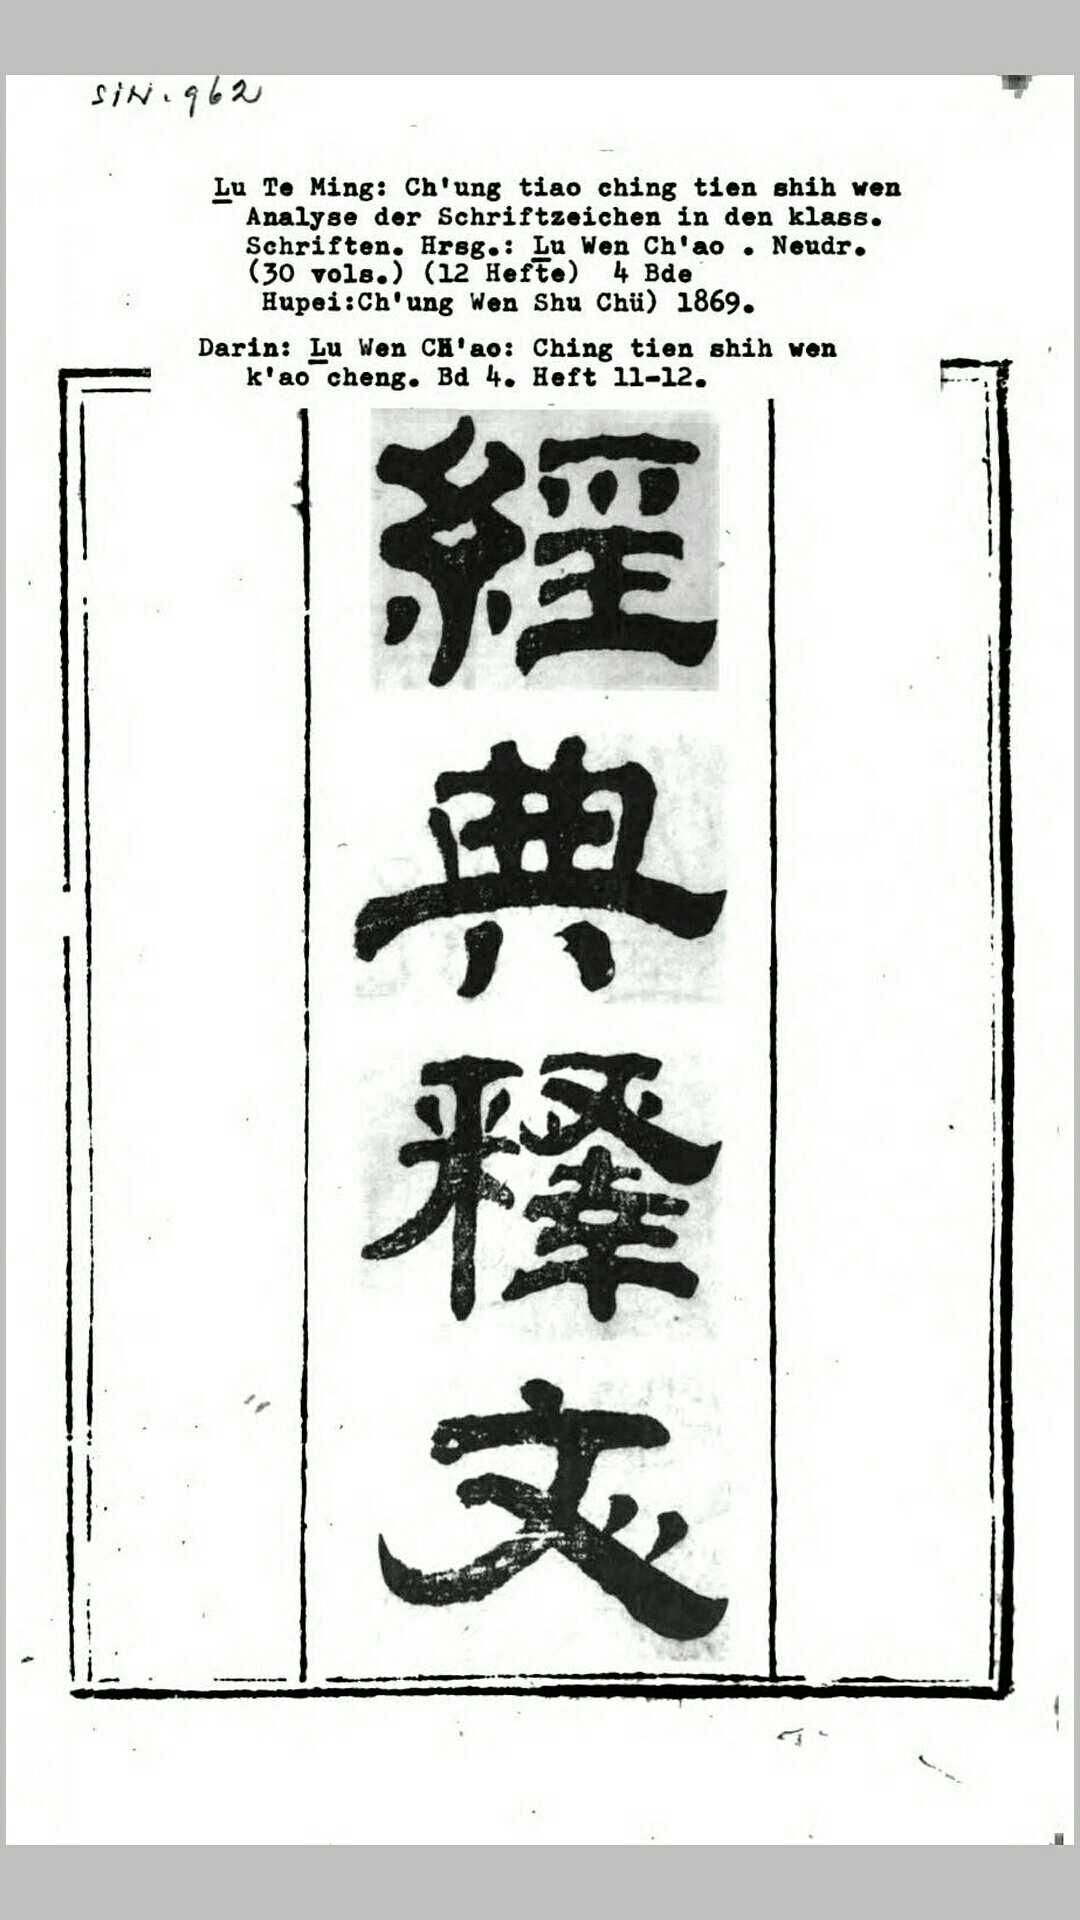 SIN. 962
Lu Te Ming: Ch'ung tiao ching tien shih wen
Analyse der Schriftzeichen in den klass.
Schriften. Hrsg.: Lu Wen Ch'ao . Neudr.
(30 vols.) (12 Hefte) 4 Bde
Hupei:Ch'ung Wen Shu Chü) 1869.
Darin: Lu Wen CH'ao: Ching tien shih wen
k'ao cheng. Bd 4. Heft 11-12.
經典釋文